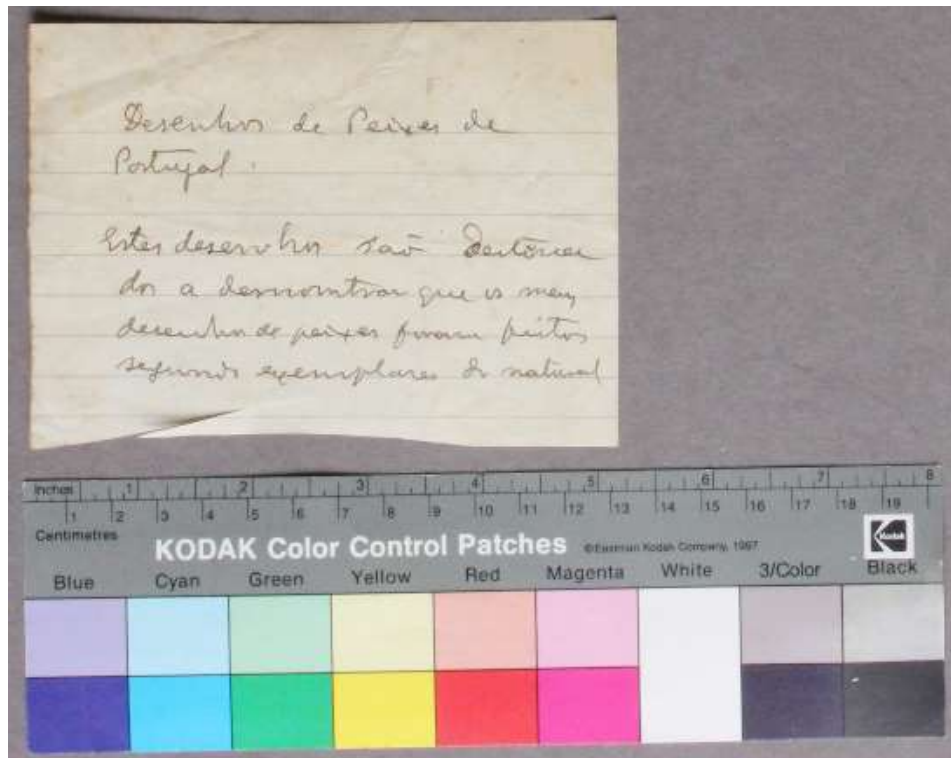 Desenhos de Peixes de
Portugal.
Estes desenhos são
dos a demonstrar que os meus
desenhos de peixes foram feitos
segundo exemplares do natural
Inches 1 2 3 4 5 6 7 8
1 2 3 4 5 6 7 8 9 10 11 12 13 14 15 16 17 18 19
Centimetres
KODAK Color Control Patches ©Eastman Kodak Company, 1997
Kodak
Blue Cyan Green Yellow Red Magenta White 3/Color Black